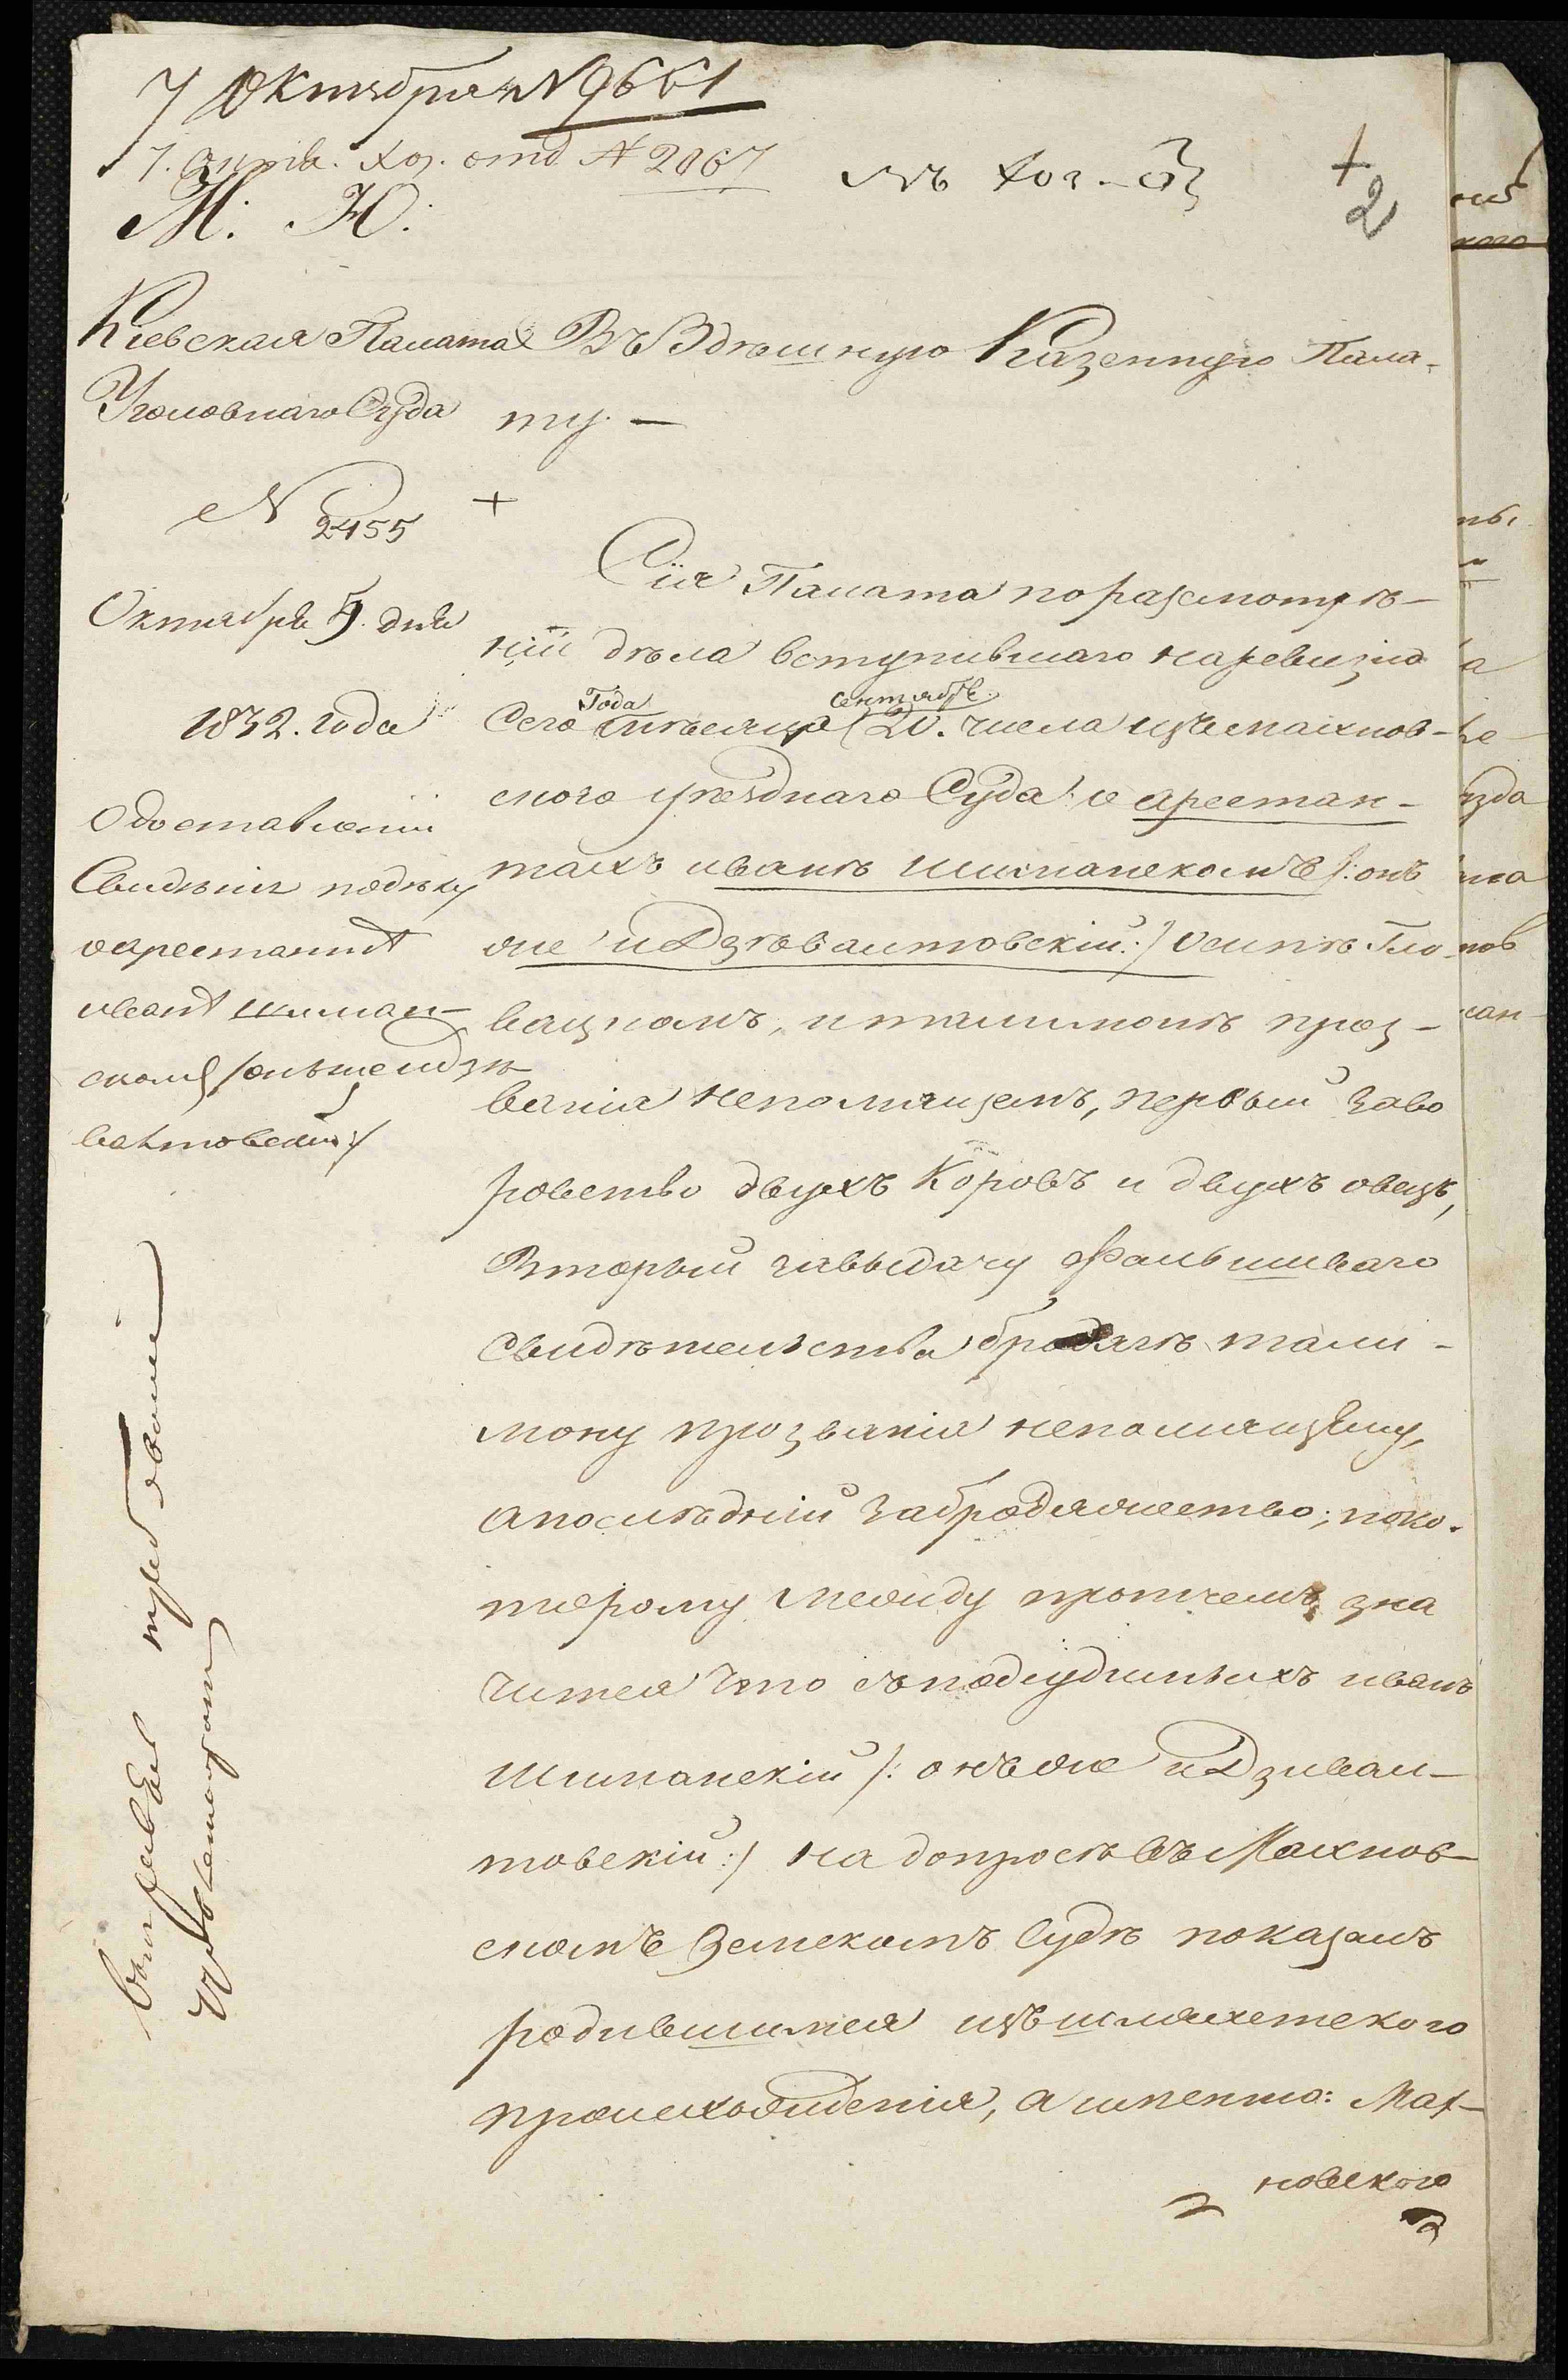 7 Октября N 9661
7. октяб. хоз. отд N 2067
въ хоз.
+
2
М: Ю:
Кіевская Палата
Уголовнаго Суда
N 2455
Октября 5. дня
1832. года
О доставленіи
Свиденія подѣлу
о арестантѣ
иванѣ шиман-
скомъ /:онъ же и Дзѣ-
валтовскій:/
Въ Здѣшнюю Казенную Пала-
ту. —
+
Сія Палата по разсмотрѣ-
ніи дѣла вступившаго на ревизію
Года Сентября
Сего мѣсяца 20. числа изъ махнов-
ского уѣзднаго Суда о арестан-
тахъ иванѣ шиманскомъ /: онъ
же и Дзѣвалтовскій:/ Осипѣ Гло-
вацкомъ, и талимонѣ проз-
ванія непомнящемъ, первый за во
ровство двухъ Коровъ и двухъ овецъ,
Вторый за выдачу Фальшиваго
Свидѣтельства бродягѣ тали-
мону прозванія непомнящему,
а послѣдній за бродяжество; по ко-
торому между протчемъ зна
чится что съ подсудимыхъ иванъ
шиманскій /: онъ же и Дзивал-
товскій:/ на допросѣ въ Махнов-
скомъ Земскомъ Судѣ показалъ
родившимся изъ шляхетского
происхожденія, а именно: Мах-
новского
требованіи
нов
сан-